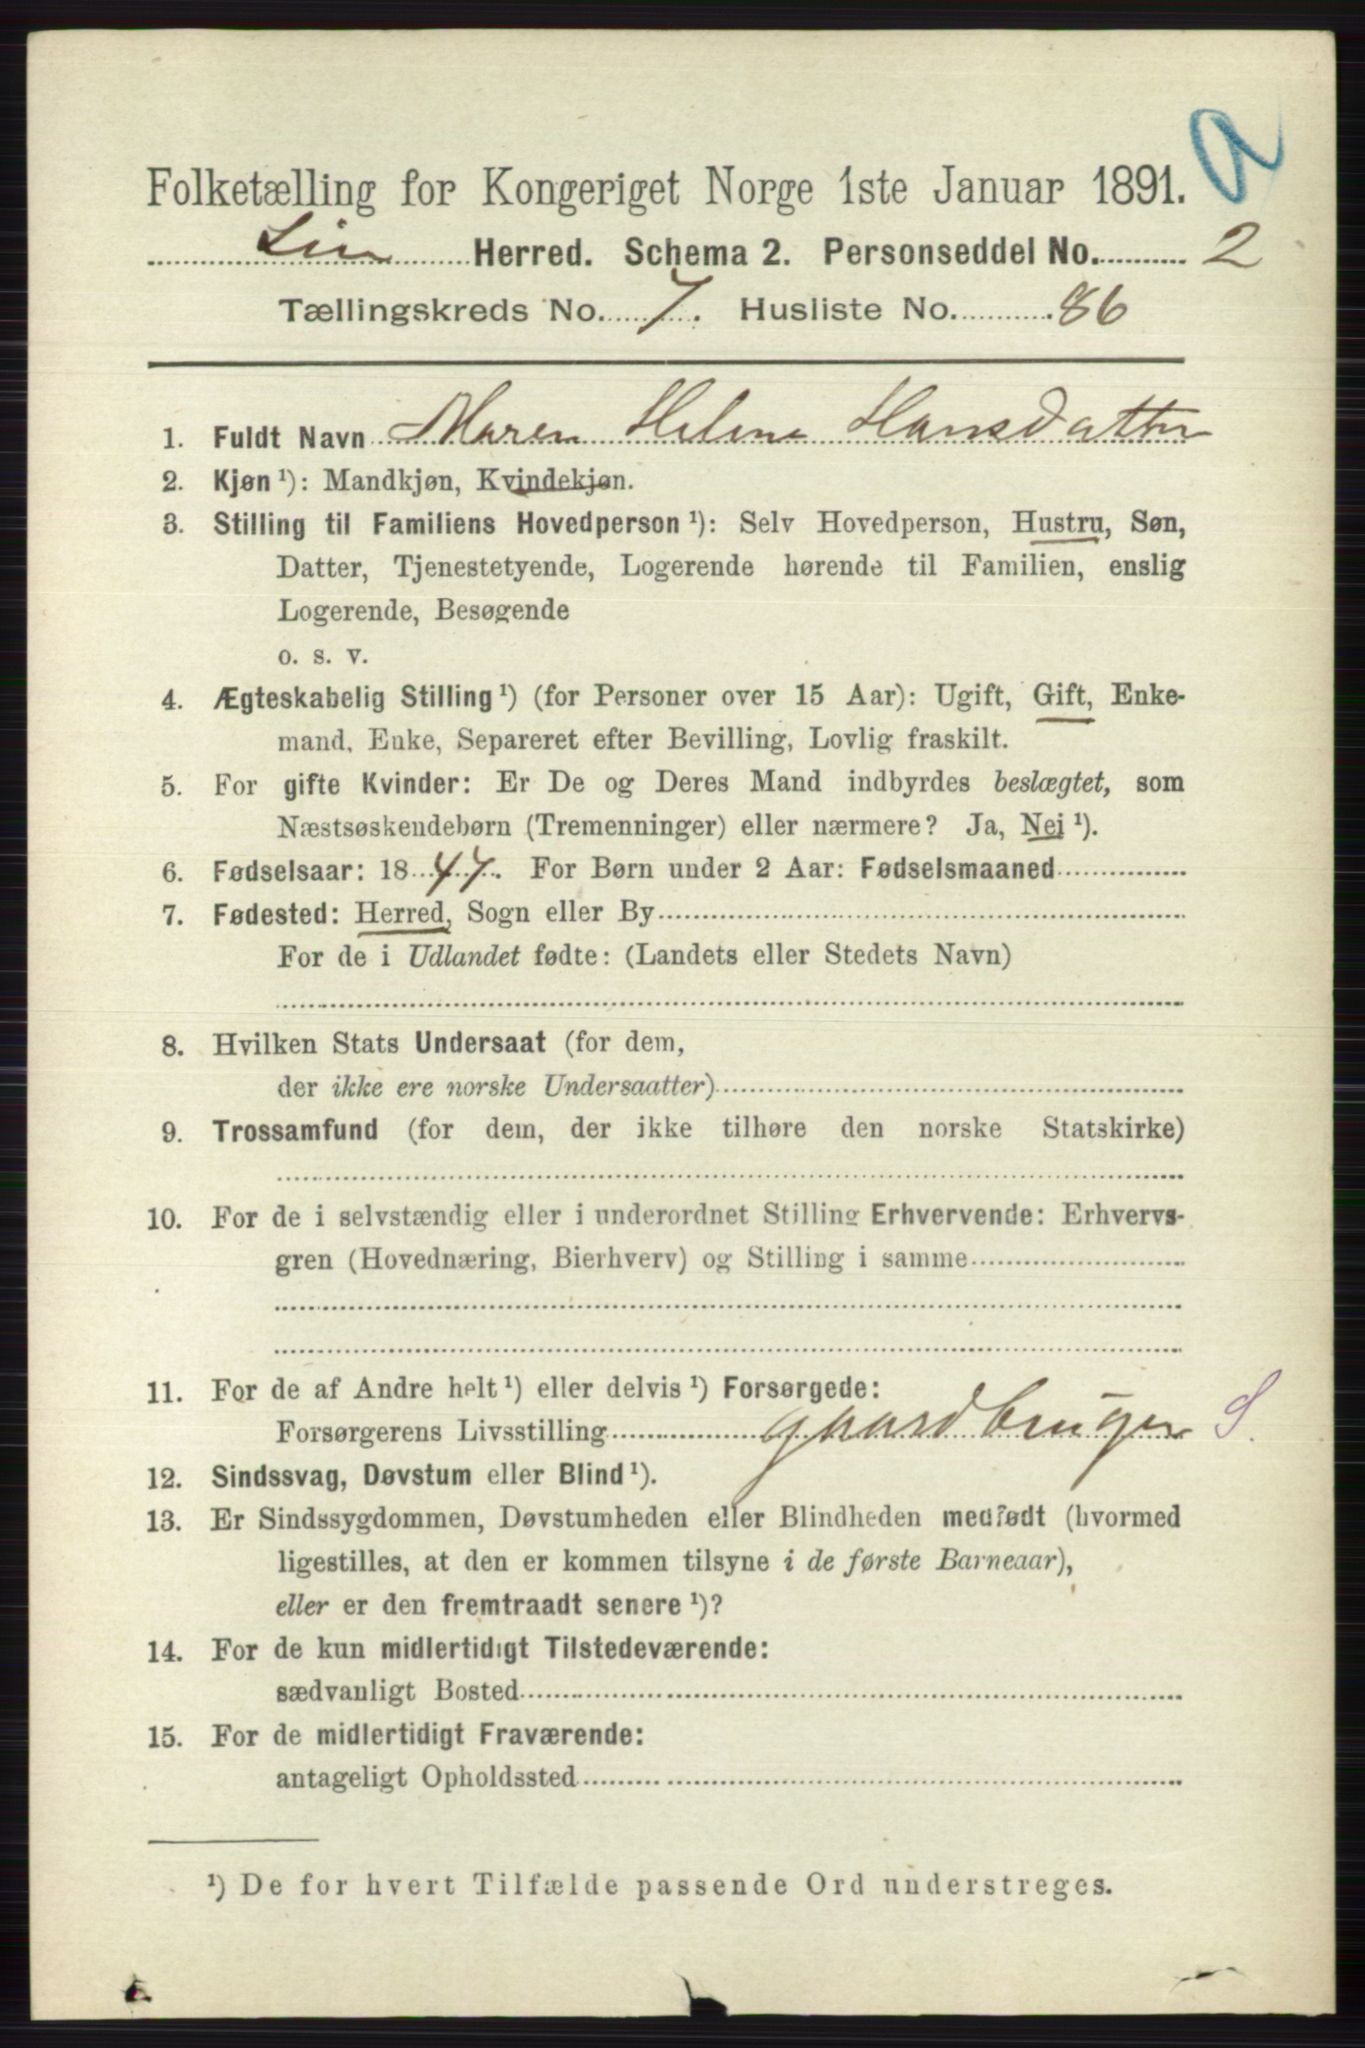 Folketælling for Kongeriget Norge 1ste Januar 1891.
Lier Herred. Schema 2. Personseddel No. 2
Tællingskreds No. 7. Husliste No. 86
1. Fuldt Navn Maren Helene Hansdatter
2. Kjøn ¹): Mandkjøn, Kvindekjøn.
3. Stilling til Familiens Hovedperson ¹): Selv Hovedperson, Hustru, Søn,
Datter, Tjenestetyende, Logerende hørende til Familien, enslig
Logerende, Besøgende
o. s. v.
4. Ægteskabelig Stilling ¹) (for Personer over 15 Aar): Ugift, Gift, Enke-
mand, Enke, Separeret efter Bevilling, Lovlig fraskilt.
5. For gifte Kvinder: Er De og Deres Mand indbyrdes beslægtet, som
Næstsøskendebørn (Tremenninger) eller nærmere? Ja, Nei ¹).
6. Fødselsaar: 1847. For Børn under 2 Aar: Fødselsmaaned
7. Fødested: Herred, Sogn eller By
For de i Udlandet fødte: (Landets eller Stedets Navn)
8. Hvilken Stats Undersaat (for dem,
der ikke ere norske Undersaatter)
9. Trossamfund (for dem, der ikke tilhøre den norske Statskirke)
10. For de i selvstændig eller i underordnet Stilling Erhvervende: Erhvervs-
gren (Hovednæring, Bierhverv) og Stilling i samme
11. For de af Andre helt ¹) eller delvis ¹) Forsørgede:
Forsørgerens Livsstilling gaardbruger S.
12. Sindssvag, Døvstum eller Blind ¹).
13. Er Sindssygdommen, Døvstumheden eller Blindheden medfødt (hvormed
ligestilles, at den er kommen tilsyne i de første Barneaar),
eller er den fremtraadt senere ¹)?
14. For de kun midlertidigt Tilstedeværende:
sædvanligt Bosted
15. For de midlertidigt Fraværende:
antageligt Opholdssted
¹) De for hvert Tilfælde passende Ord understreges.